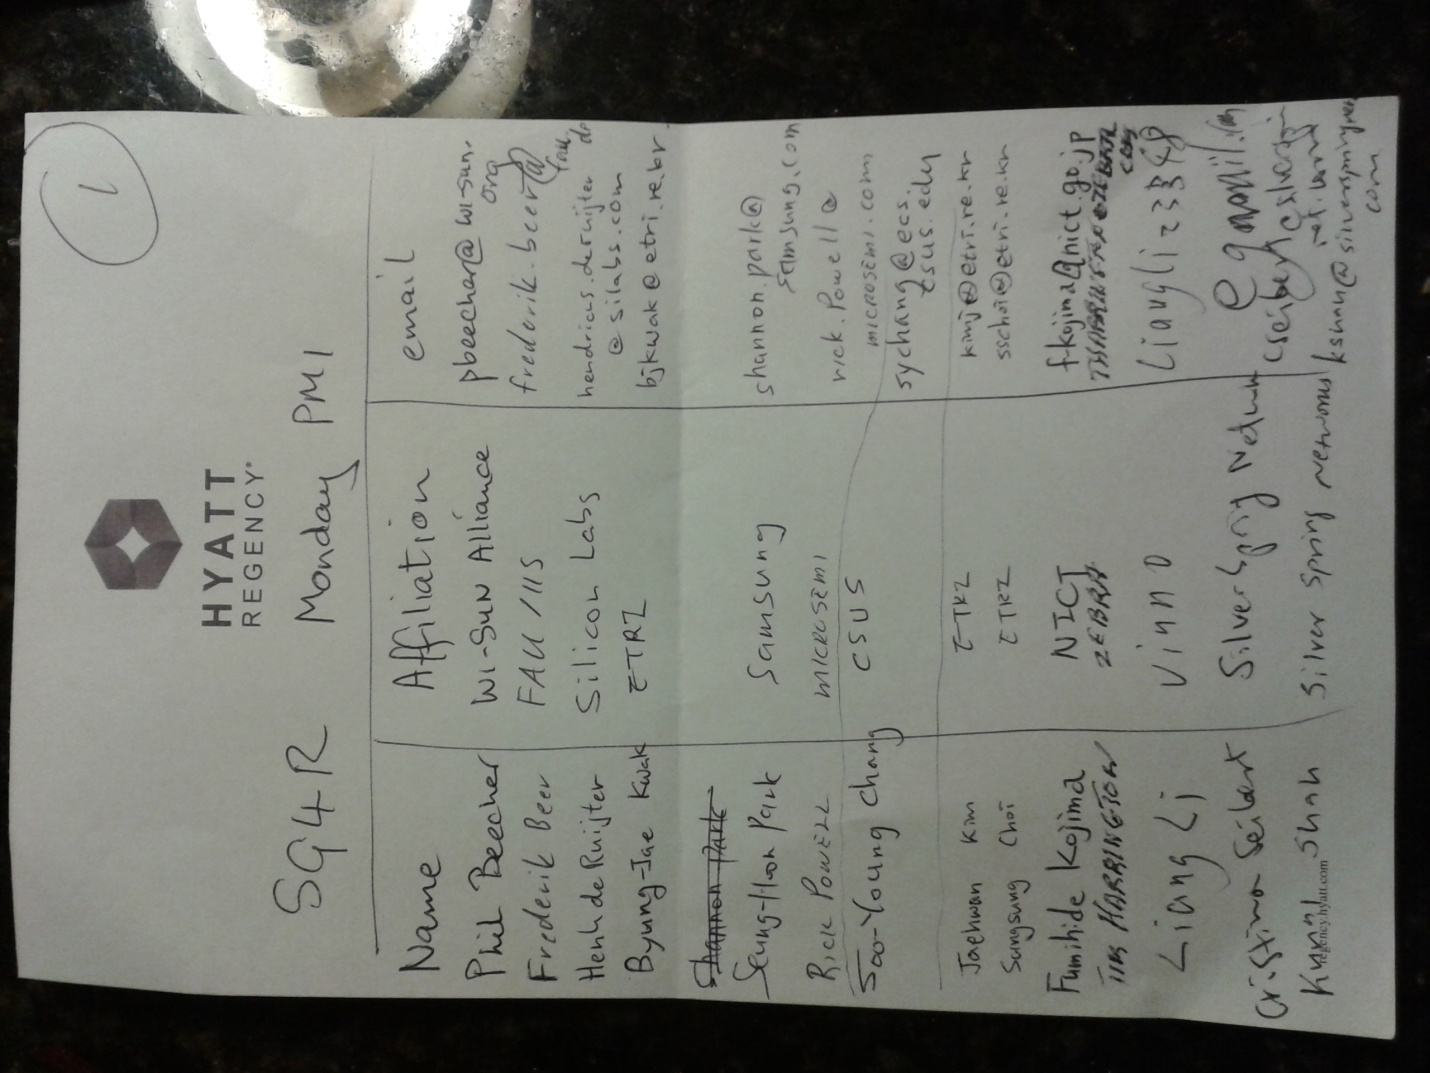 1
HYATT
REGENCY®
SG4R Monday PM1
Name Affiliation email
Phil Beecher Wi-SUN Alliance pbeecher@wi-sun.
org
Frederik Beer FAU/IIS frederik.beer@
fau.de
Henk de Ruijter Silicon Labs hendricus.deruijter
@silabs.com
Byung-Jae Kwak ETRI bjkwak@etri.re.kr
Shannon Park
Seung-Hoon Park Samsung shannon.park@
samsung.com
RICK POWELL MICROSEMI rick.powell@
microsemi.com
Soo-Young Chang CSUS sychang@ecs.
csus.edu
Jaehwan Kim ETRI kimj@etri.re.kr
Sungsung Choi ETRI sschoi@etri.re.kr
Fumihide Kojima NICT f-kojima@nict.go.jp
TIM HARRINGTON ZEBRA
Liang Li Vinno liangli2334@
gmail.com
Cristina Seibert Silver Spring Network
Kunal Shah Silver Spring Networks kshah@silverspringnet
com
regency.hyatt.com